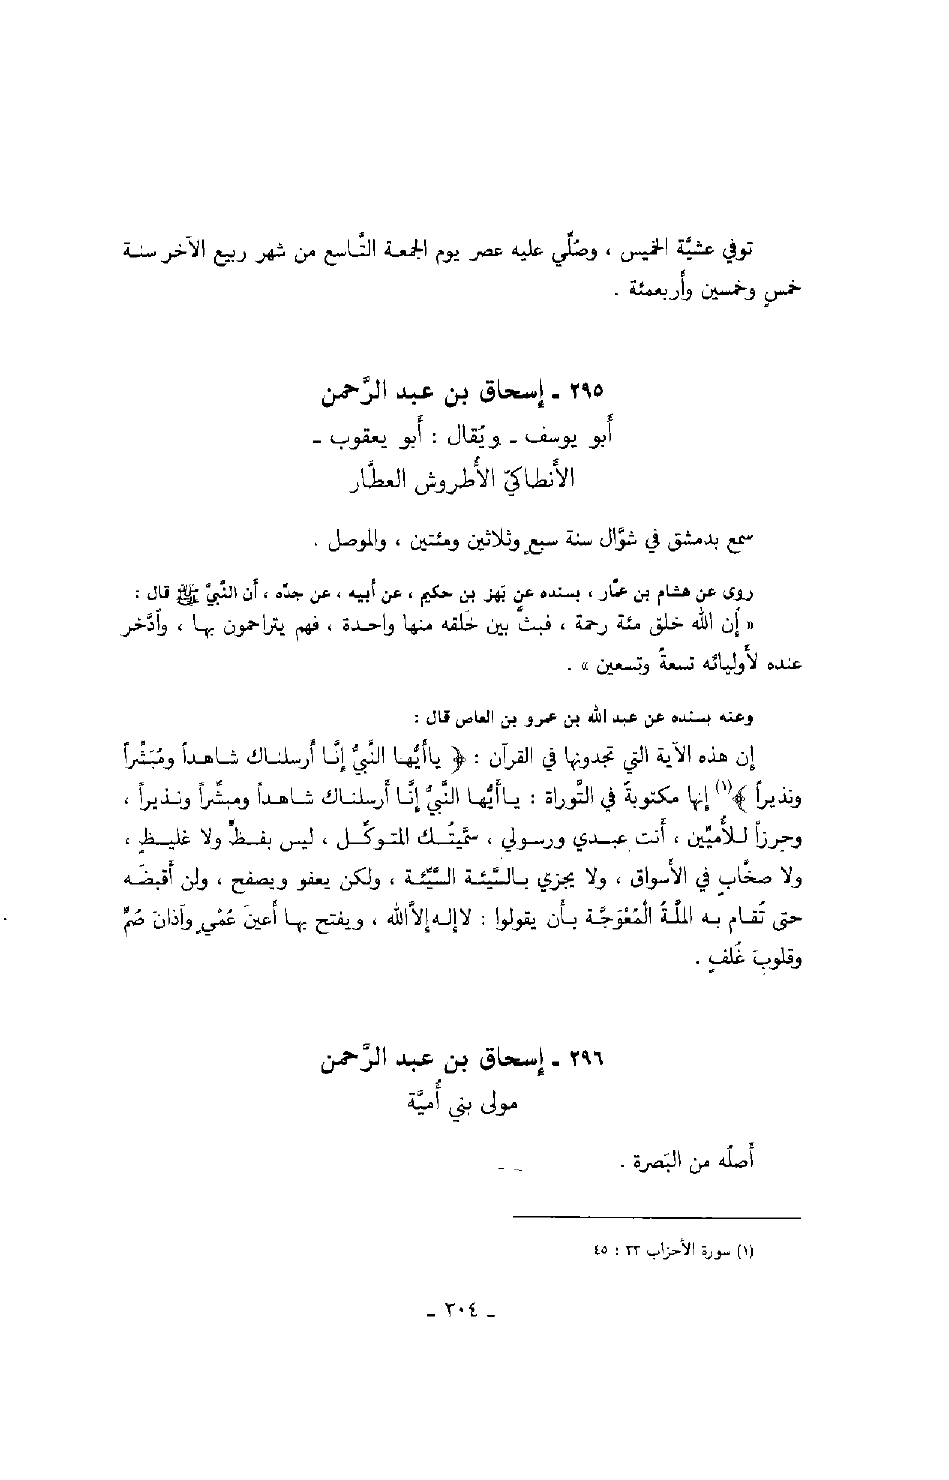 توفي عشيَّة الخميس ، وصُلِّي عليه عصر يوم الجمعة التَّاسع من شهر ربيع الآخر سنة
خمسٍ وخمسين وأربعمئة .
٢٩٥ ـ إسحاق بن عبد الرَّحمن
أبو يوسف ـ ويُقال : أبو يعقوب ـ
الأنطاكيّ الأُطروش العطَّار
سمع بدمشق في شوَّال سنة سبعٍ وثلاثين ومئتين ، والموصل .
روى عن هشام بن عمَّار ، بسنده عن بَهز بن حكيم ، عن أبيه ، عن جدّه ، أن النَّبيَّ ﷺ قال :
« إن الله خلق مئة رحمة ، فبثَّ بين خَلقه منها واحدة ، فهم يتراحمون بها ، وٱدَّخر
عنده لأوليائه تسعةً وتسعين » .
وعنه بسنده عن عبد الله بن عمرو بن العاص قال :
إن هذه الآية التي تجدونها في القرآن : ﴿ ياأيُّها النَّبيُّ إنَّا أرسلناك شاهداً ومُبَشِّراً
ونذيراً ﴾(١) إنها مكتوبةٌ في التَّوراة : ياأيُّها النَّبيُّ إنَّا أرسلناك شاهداً ومبشِّراً ونذيراً ،
وحِرزاً للأُميِّين ، أنت عبدي ورسولي ، سمَّيتُك المتوكِّل ، ليس بفظٍّ ولا غليظٍ ،
ولا صخَّابٍ في الأسواق ، ولا يجزي بالسَّيِّئة السَّيِّئة ، ولكن يعفو ويصفح ، ولن أقبضَه
حتى تُقام به الملَّةُ الْمُعْوَجَّة بأن يقولوا : لاإله إلاَّ الله ، ويفتح بها أعينَ عُمْيٍ وآذانَ صُمٍّ
وقلوبَ غُلفٍ .
٢٩٦ ـ إسحاق بن عبد الرَّحمن
مولى بني أُميَّة
أصلُه من البَصرة .
(١) سورة الأحزاب ٣٣ : ٤٥
ـ ٣٠٤ ـ